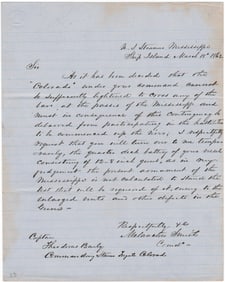 U. S. Steamer Mississippi
Ship Island March 18th 1862
Sir
As it has been decided that the
"Colorado" under your command cannot
be sufficiently lightened to cross any of the
bars at the passes of the Mississippi and
must in consequence of this contingency be
debarred from participating in the hostilities
to be commenced up the river, I respectfully
request that you will loan me temporarily
the quarter deck battery of your vessel
consisting of 8 inch guns, as in my
judgement the present armament of the
Mississippi is not calculated to stand the
test that will be required of it, owing to the
enlarged vents and other defects in the
Guns
Respectfully &c
Melancton Smith
Comdr
Captain
Theodorus Bailey
Commanding Steam Frigate Colorado